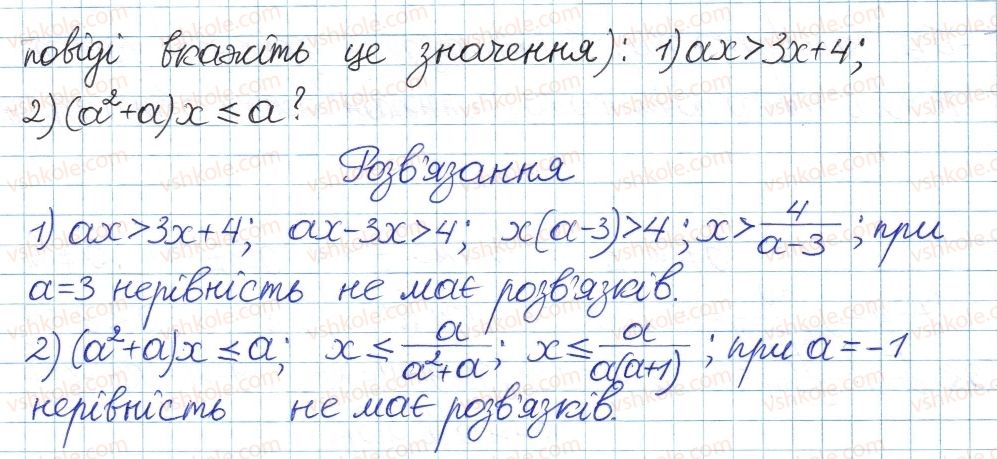 повіді вкажіть це значення): 1) ax>3x+4;
2) (a²+a)x ≤ a?
Розв'язання
1) ax>3x+4; ax-3x>4; x(a-3)>4; x> 4/(a-3); при
a=3 нерівність не має розв'язків.
2) (a²+a)x ≤ a; x ≤ a/(a²+a); x ≤ a/(a(a+1)); при a=-1
нерівність не має розв'язків.